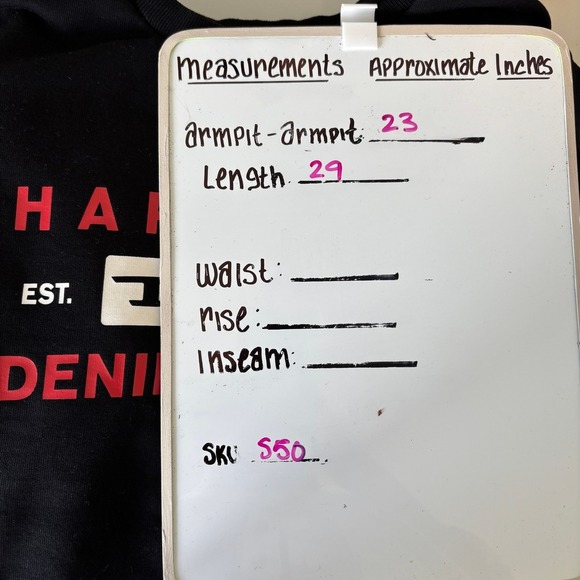 measurements Approximate Inches
armpit-armpit: 23
Length 29
waist:
rise:
Inseam:
SKU S50
HA
EST.
DENI